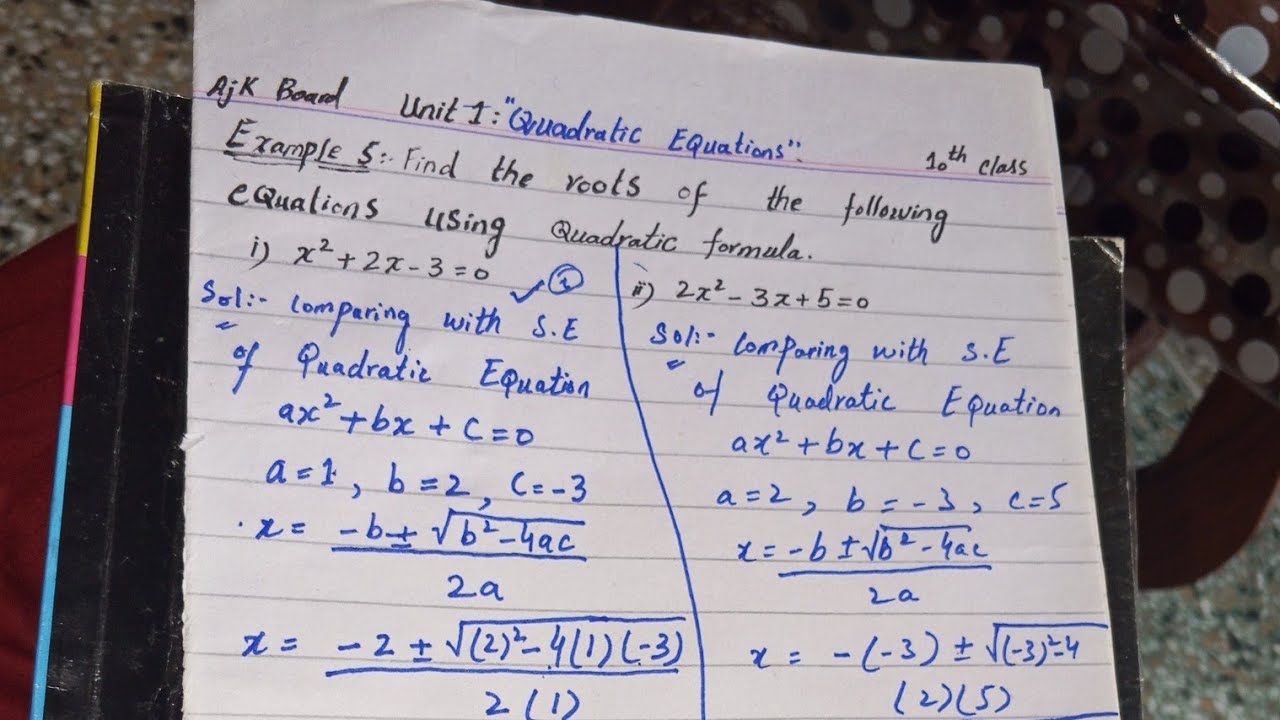 AjK Board Unit 1: "Quadratic Equations". 10th class
Example 5:- Find the roots of the following
equations using Quadratic formula.
i) x² + 2x - 3 = 0 ✓ ①
Sol:- Comparing with S.E
of Quadratic Equation
ax² + bx + c = 0
a = 1, b = 2, c = -3
x = -b ± √b² - 4ac
2a
x = -2 ± √(2)² - 4(1)(-3)
2(1)
ii) 2x² - 3x + 5 = 0
Sol:- Comparing with S.E
of Quadratic Equation
ax² + bx + c = 0
a = 2, b = -3, c = 5
x = -b ± √b² - 4ac
2a
x = -(-3) ± √(-3)² - 4
(2)(5)